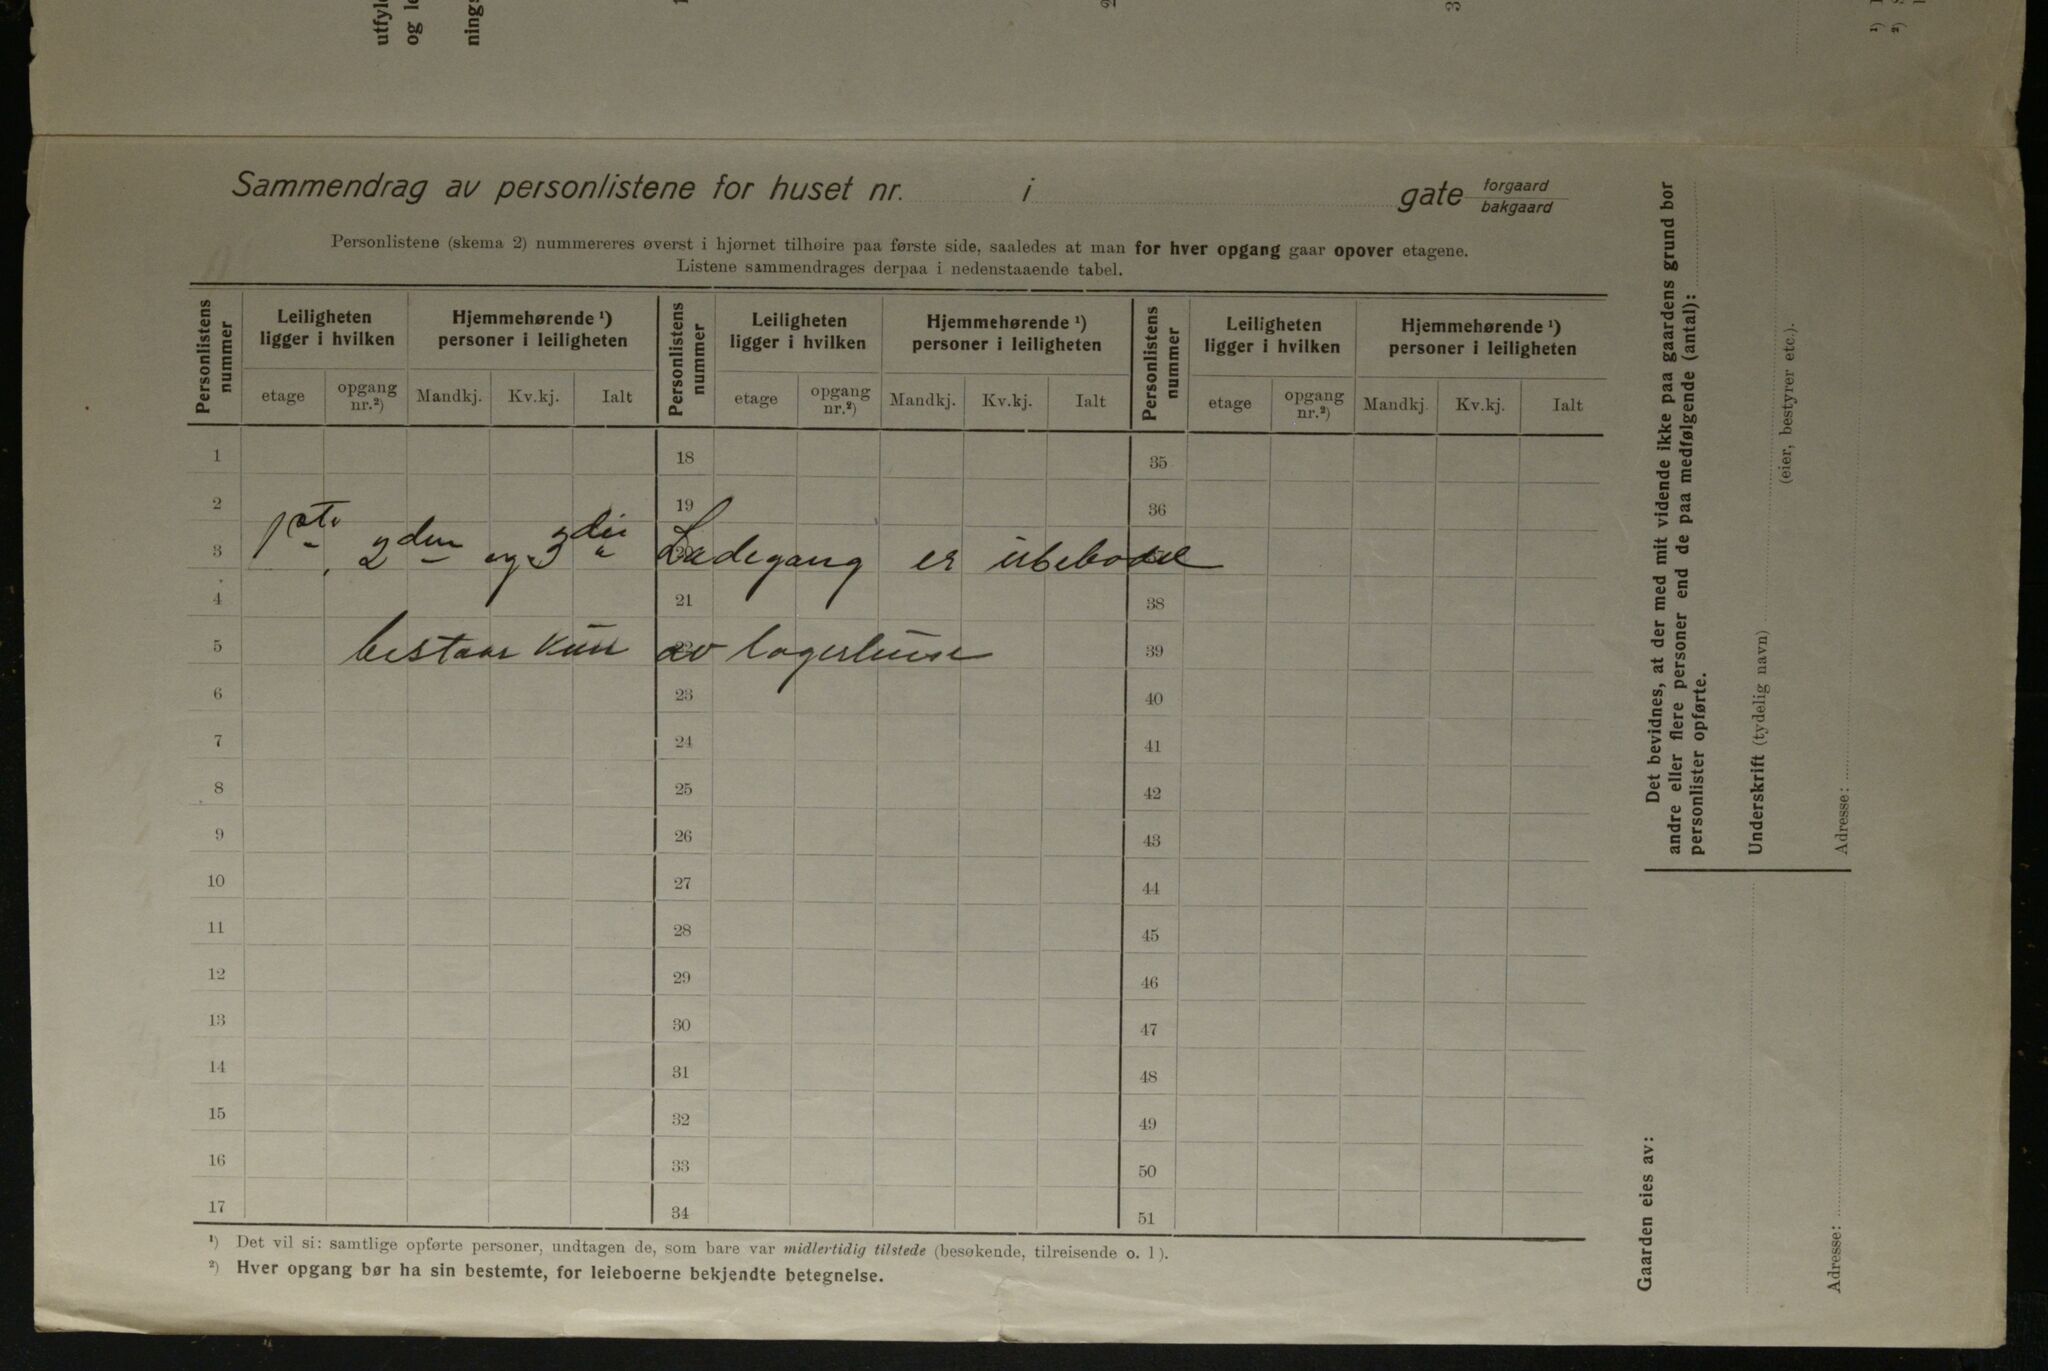 utfyl
og le
nings
1
2
3
¹)
²)
Sammendrag av personlistene for huset nr. i gate forgaard bakgaard
Personlistene (skema 2) nummereres øverst i hjørnet tilhøire paa første side, saaledes at man for hver opgang gaar opover etagene.
Listene sammendrages derpaa i nedenstaaende tabel.
Personlistens nummer
Leiligheten ligger i hvilken
Hjemmehørende ¹) personer i leiligheten
Personlistens nummer
Leiligheten ligger i hvilken
Hjemmehørende ¹) personer i leiligheten
Personlistens nummer
Leiligheten ligger i hvilken
Hjemmehørende ¹) personer i leiligheten
etage opgang nr.²) Mandkj. Kv.kj. Ialt etage opgang nr.²) Mandkj. Kv.kj. Ialt etage opgang nr.²) Mandkj. Kv.kj. Ialt
1 18 35
2 19 36
3
1ste, 2den og 3die Ladegang er ubeboet
4 21 38
5 39
bestaar kun av lagerhuse
6 23 40
7 24 41
8 25 42
9 26 43
10 27 44
11 28 45
12 29 46
13 30 47
14 31 48
15 32 49
16 33 50
17 34 51
¹) Det vil si: samtlige opførte personer, undtagen de, som bare var midlertidig tilstede (besøkende, tilreisende o. l).
²) Hver opgang bør ha sin bestemte, for leieboerne bekjendte betegnelse.
Det bevidnes, at der med mit vidende ikke paa gaardens grund bor
andre eller flere personer end de paa medfølgende (antal):
personlister opførte.
Underskrift (tydelig navn)
(eier, bestyrer etc.).
Adresse:
Gaarden eies av:
Adresse: